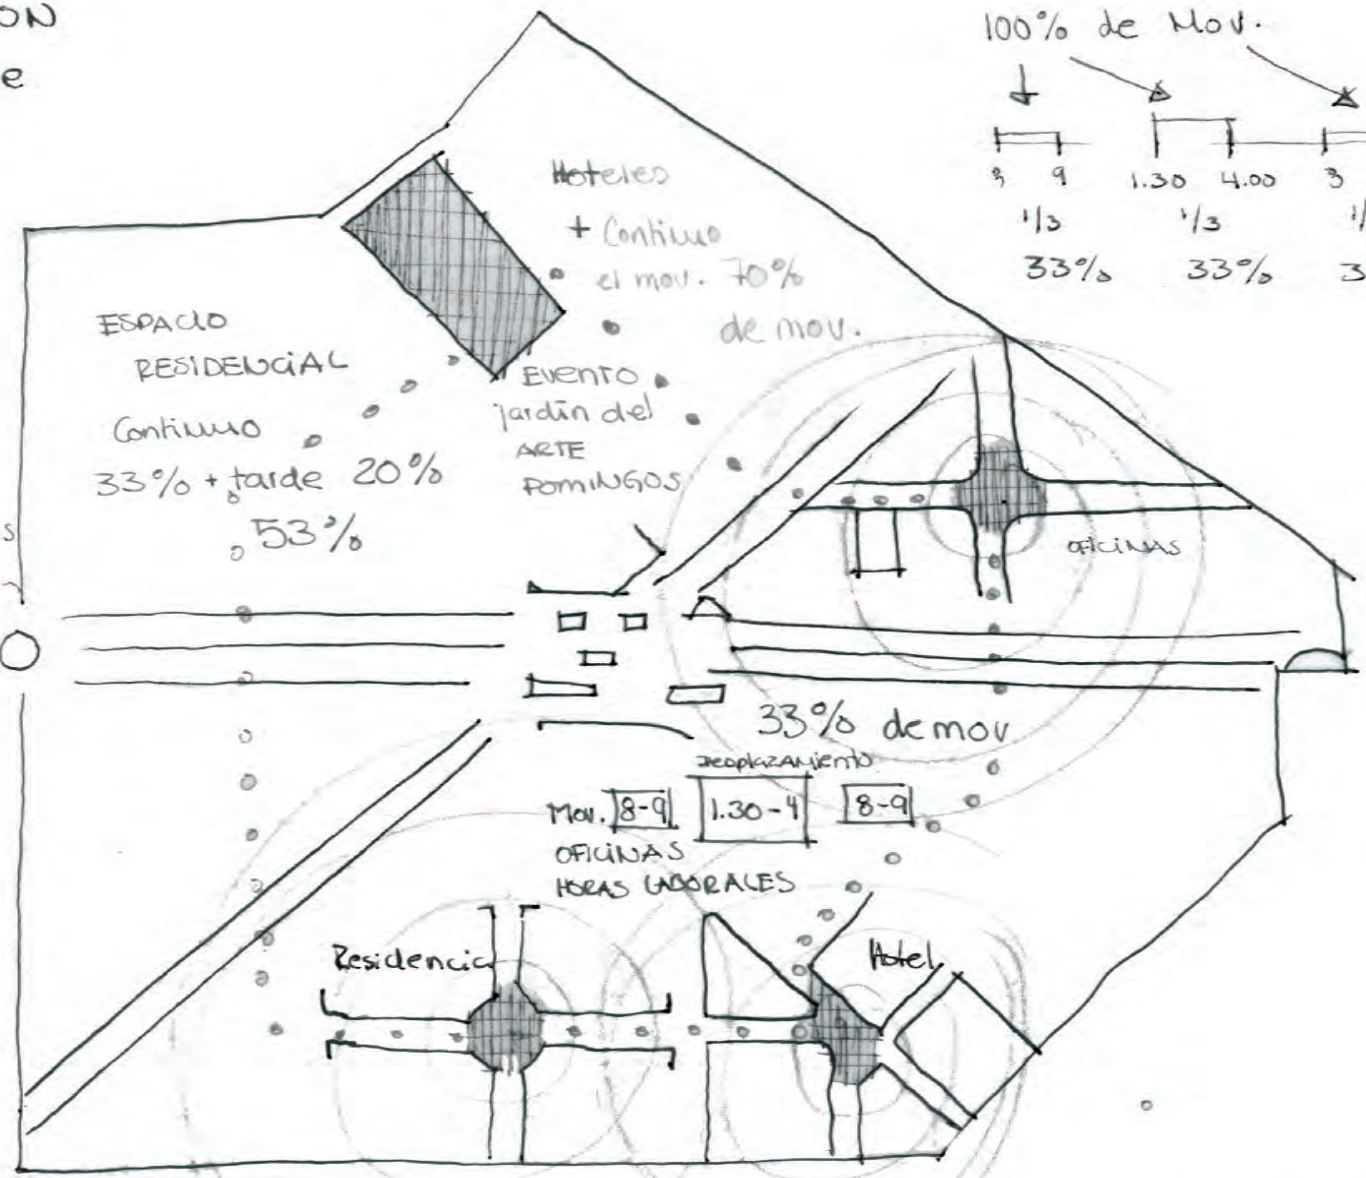 ON
e
100% de Mov.
3 9 1.30 4.00 3
1/3 1/3 1/
33% 33% 3
Hoteles
+ Continuo
el mov. 70%
de mov.
ESPACIO
RESIDENCIAL
Continuo
33% + tarde 20%
53%
EVENTO
jardin del
ARTE
DOMINGOS
s
OFICINAS
33% de mov
Desplazamiento
Mov. 8-9 1.30-4 8-9
OFICINAS
HORAS LABORALES
Residencia
Hotel